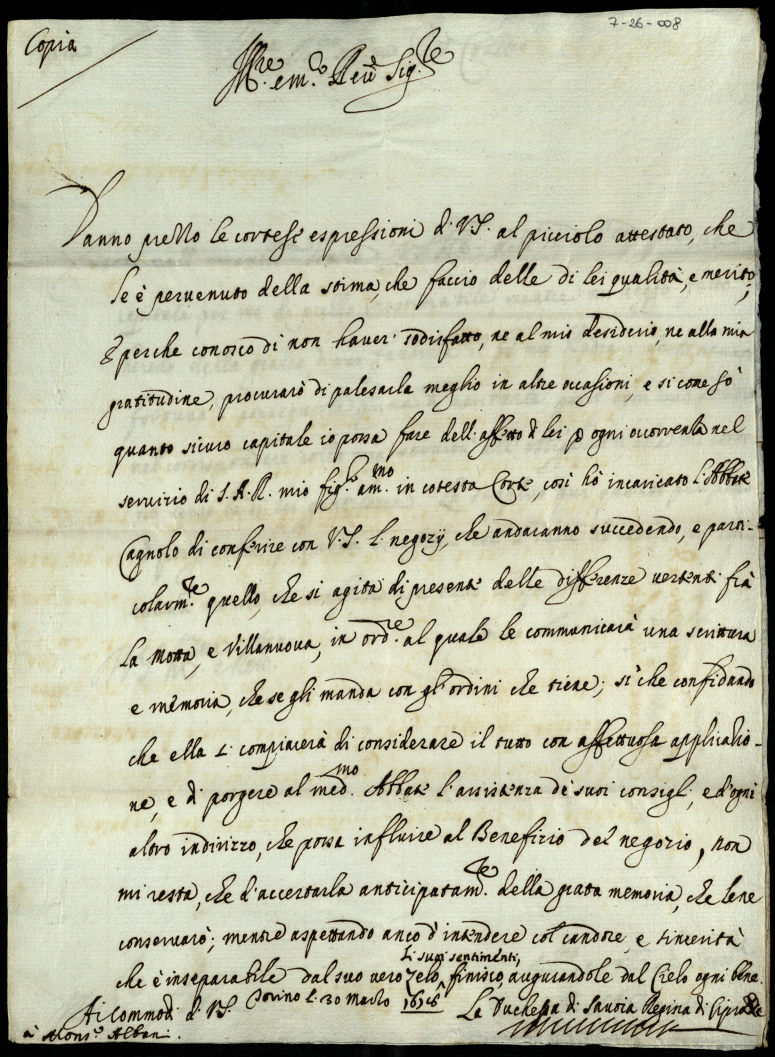 7-26-008
Copia
Ill.re e m.to Reu. Sig.re
Danno prezzo le cortesi espressioni di V.S. al picciolo attestato, che
se è pervenuto della stima, che faccio delle di lei qualità, e merito;
E perche conosco di non haver sodisfatto, ne al mio desiderio, ne alla mia
gratitudine, procurarò di palesarla meglio in altre occasioni, e si come sò
quanto sicuro capitale io possa fare dell'affetto di lei p ogni occorrenza nel
servirio di S.A.R. mio fig.lo am.mo in cotesta Corte, così hò incaricato l'Abbate
Cagnolo di conferire con V.S. li negozy, che andaranno succedendo, e parti-
colarm.te quello, che si agita di presente delle differenze vertenti frà
la Motta, e Villanuova, in ord.e al quale le communicarà una scrittura
e memoria, che se gli manda con gl'ordini che tiene; sì che confidando
che ella si compiacerà di considerare il tutto con affettuosa applicatio-
ne, e di porgere al med.mo Abbate l'assistenza de suoi consigli, e d'ogni
altro indirizzo, che possa influire al Beneficio del negorio, non
mi resta, che d'accertarla anticipatam.te della grata memoria, che bene
conservarò; mentre aspettando anco d'intendere col candore, e sincerità
li suoi sentimenti,
che è inseparabile dal suo vero zelo, finisco, augurandole dal Cielo ogni bene.
Torino li 30 Marzo 1676
Ai commodi di V.S. La Duchessa di Savoia Regina di Cipro
à Mons.r Albani.